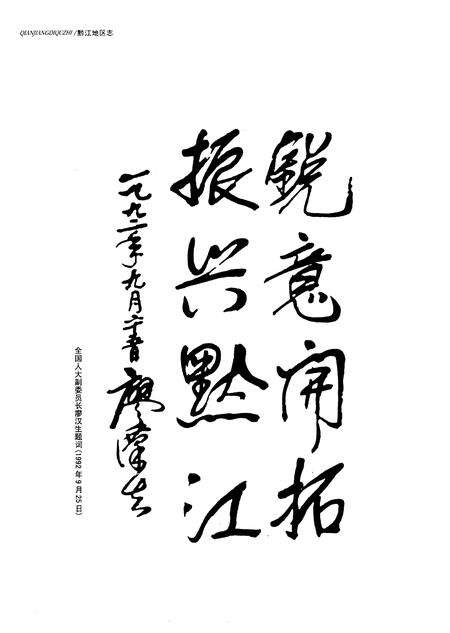 QIANJIANGDIQUZHI/黔江地区志
鋭意开拓
振兴黔江
一九九二年九月二十五日
廖漢生
全国人大副委员长廖汉生题词(1992年9月25日)